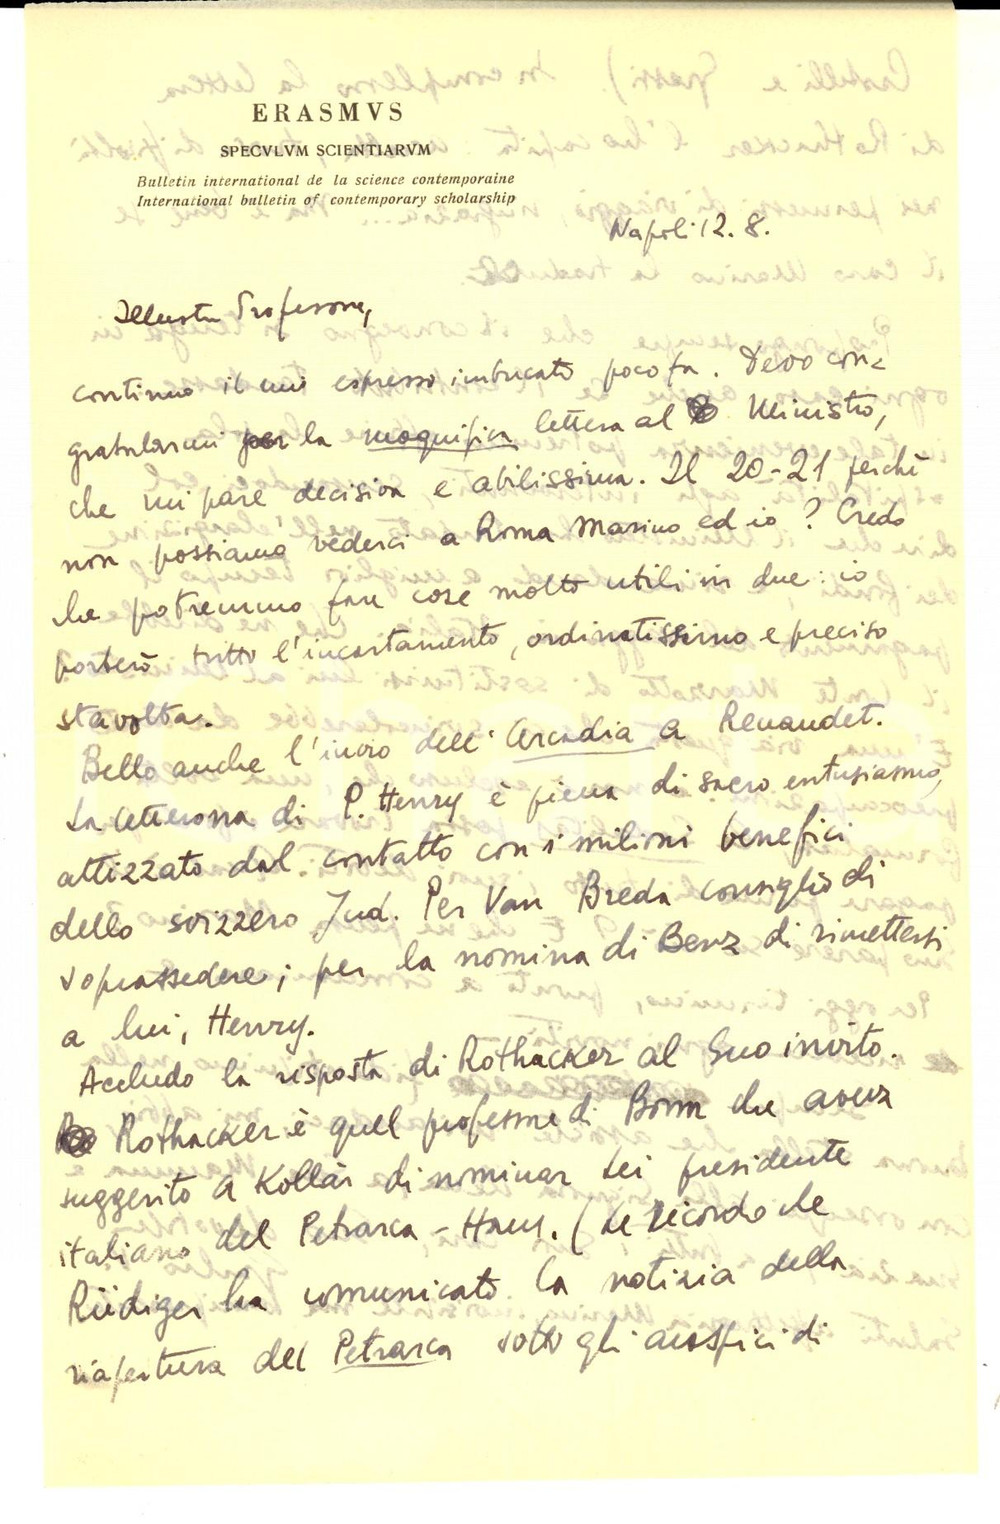 ERASMVS
SPECVLVM SCIENTIARVM
Bulletin international de la science contemporaine
International bulletin of contemporary scholarship
Napoli 12. 8.
Illustre Professore,
continuo il mio espresso imbucato poco fa. Devo con-
gratularmi per la magnifica lettera al Ministro,
che mi pare decisiva e abilissima. Il 20-21 perchè
non possiamo vederci a Roma Marino ed io? Credo
che potremmo fare cose molto utili in due: io
porterò tutto l'incartamento, ordinatissimo e preciso
stavolta.
Bello anche l'invio dell'Arcadia a Renaudet.
La letterona di P. Henry è piena di sacro entusiasmo,
attizzato dal contatto con i milioni benefici
dello svizzero Jud. Per Van Breda consiglio di
soprassedere; per la nomina di Benz di rimettersi
a lui, Henry.
Accludo la risposta di Rothacker al Suo invito.
Rothacker è quel professore di Bonn che aveva
suggerito a Kollár di nominar Lei presidente
italiano del Petrarca-Haus. (Le ricordo che
Rüdiger ha comunicato la notizia della
riapertura del Petrarca sotto gli auspici di